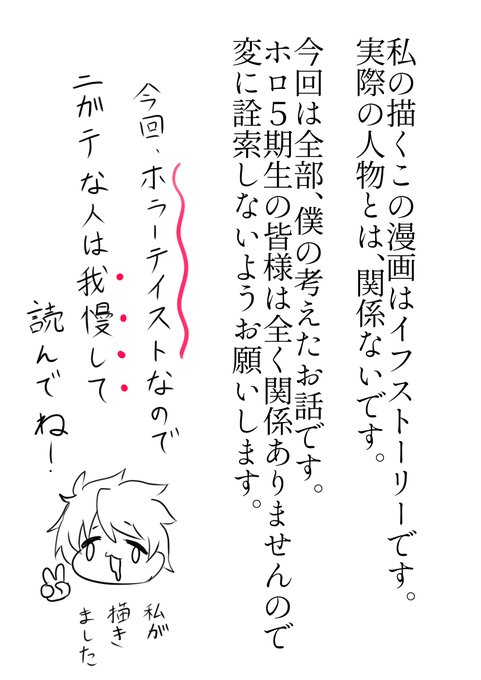 私の描くこの漫画はイフストーリーです。
実際の人物とは、関係ないです。
今回は全部、僕の考えたお話です。
ホロ５期生の皆様は全く関係ありませんので
変に詮索しないようお願いします。
今回、ホラーテイストなので
ニガテな人は我慢して
読んでね！
私が
描き
ました